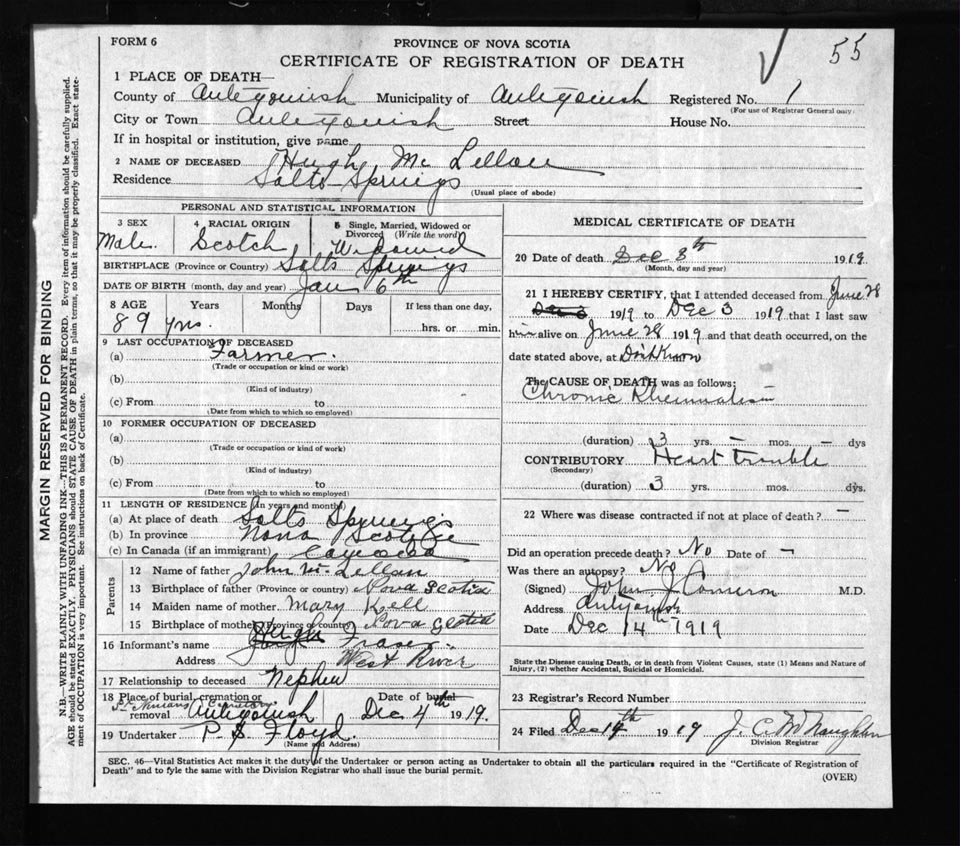 55
FORM 6
PROVINCE OF NOVA SCOTIA
CERTIFICATE OF REGISTRATION OF DEATH
1 PLACE OF DEATH—
County of Antigonish Municipality of Antigonish Registered No. 1
(For use of Registrar General only)
City or Town Antigonish Street House No.
If in hospital or institution, give name
2 NAME OF DECEASED Hugh McLellan
Residence Salts Springs
(Usual place of abode)
PERSONAL AND STATISTICAL INFORMATION
3 SEX 4 RACIAL ORIGIN 5 Single, Married, Widowed or Divorced (Write the word)
Male. Scotch Widowed
BIRTHPLACE (Province or Country) Salts Springs
DATE OF BIRTH (month, day and year) Jan 6th
8 AGE Years Months Days If less than one day,
89 yrs. hrs. or min.
9 LAST OCCUPATION OF DECEASED
(a) Farmer.
(Trade or occupation or kind or work)
(b)
(Kind of industry)
(c) From to
(Date from which to which so employed)
10 FORMER OCCUPATION OF DECEASED
(a)
(Trade or occupation or kind of work)
(b)
(Kind of industry)
(c) From to
(Date from which to which so employed)
11 LENGTH OF RESIDENCE (in years and months)
(a) At place of death Salts Springs
(b) In province Nova Scotia
(c) In Canada (if an immigrant) Canada
Parents
12 Name of father John McLellan
13 Birthplace of father (Province or country) Nova Scotia
14 Maiden name of mother Mary Kell
15 Birthplace of mother (Province or country) Nova Scotia
16 Informant's name Hugh Fraser
Address West River
17 Relationship to deceased Nephew
18 Place of burial, cremation or removal St Ninians Cemetery Antigonish Date of burial Dec 4th 1919.
19 Undertaker P. S. Floyd.
(Name and Address)
MEDICAL CERTIFICATE OF DEATH
20 Date of death Dec 8th 1919.
(Month, day and year)
21 I HEREBY CERTIFY, that I attended deceased from June 28
1919 to Dec 3 1919 that I last saw
him alive on June 28 1919 and that death occurred, on the
date stated above, at Don't Know
The CAUSE OF DEATH was as follows:
Chronic Rheumatism
(duration) 3 yrs. – mos. – dys
CONTRIBUTORY Heart trouble
(Secondary)
(duration) 3 yrs. mos. dys.
22 Where was disease contracted if not at place of death? –
Did an operation precede death? No Date of –
Was there an autopsy? No
(Signed) John J Cameron M.D.
Address Antigonish
Date Dec 14th 1919
State the Disease causing Death, or in death from Violent Causes, state (1) Means and Nature of Injury, (2) whether Accidental, Suicidal or Homicidal.
23 Registrar's Record Number
24 Filed Dec 14th 1919 J. C. McNaughton
Division Registrar
SEC. 46—Vital Statistics Act makes it the duty of the Undertaker or person acting as Undertaker to obtain all the particulars required in the "Certificate of Registration of
Death" and to fyle the same with the Division Registrar who shall issue the burial permit.
(OVER)
MARGIN RESERVED FOR BINDING
N.B.—WRITE PLAINLY WITH UNFADING INK—THIS IS A PERMANENT RECORD. Every item of information should be carefully supplied.
AGE should be stated EXACTLY. PHYSICIANS should STATE CAUSE OF DEATH in plain terms, so that it may be properly classified. Exact state-
ment of OCCUPATION is very important. See instructions on back of Certificate.